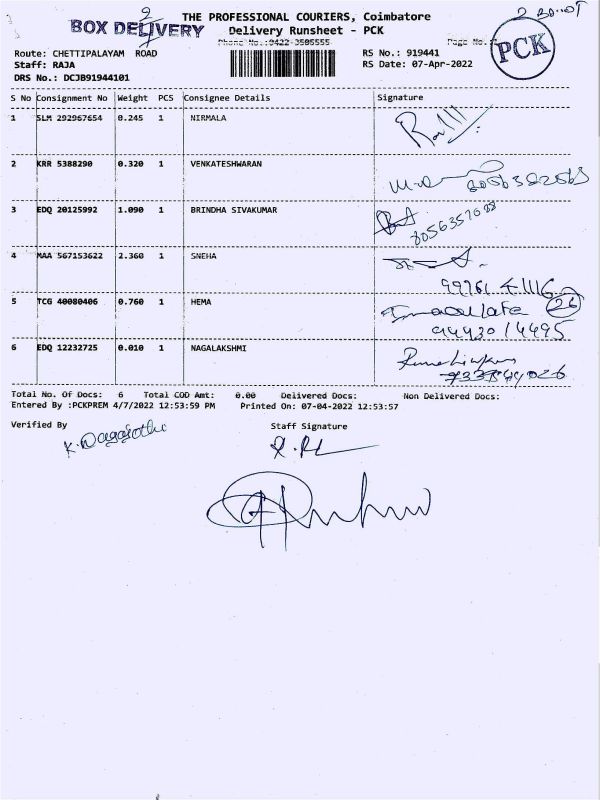 THE PROFESSIONAL COURIERS, Coimbatore
BOX DELIVERY
Delivery Runsheet - PCK
Phone No.:0422-3505555
Page No.
PCK
Route: CHETTIPALAYAM ROAD
RS No.: 919441
Staff: RAJA
RS Date: 07-Apr-2022
DRS No.: DCJB91944101
S No Consignment No Weight PCS Consignee Details Signature
1 SLM 292967654 0.245 1 NIRMALA
2 KRR 5388290 0.320 1 VENKATESHWARAN
3 EDQ 20125992 1.090 1 BRINDHA SIVAKUMAR
8056357688
4 MAA 567153622 2.360 1 SNEHA
5 TCG 40080406 0.760 1 HEMA
Immaculate 26
94430 14495
6 EDQ 12232725 0.010 1 NAGALAKSHMI
Total No. Of Docs: 6 Total COD Amt: 0.00 Delivered Docs: Non Delivered Docs:
Entered By :PCKPREM 4/7/2022 12:53:59 PM Printed On: 07-04-2022 12:53:57
Verified By Staff Signature